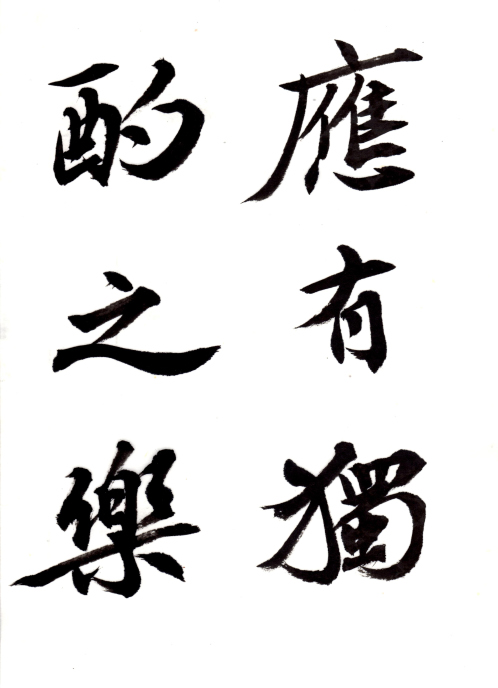 應有獨
酌之樂